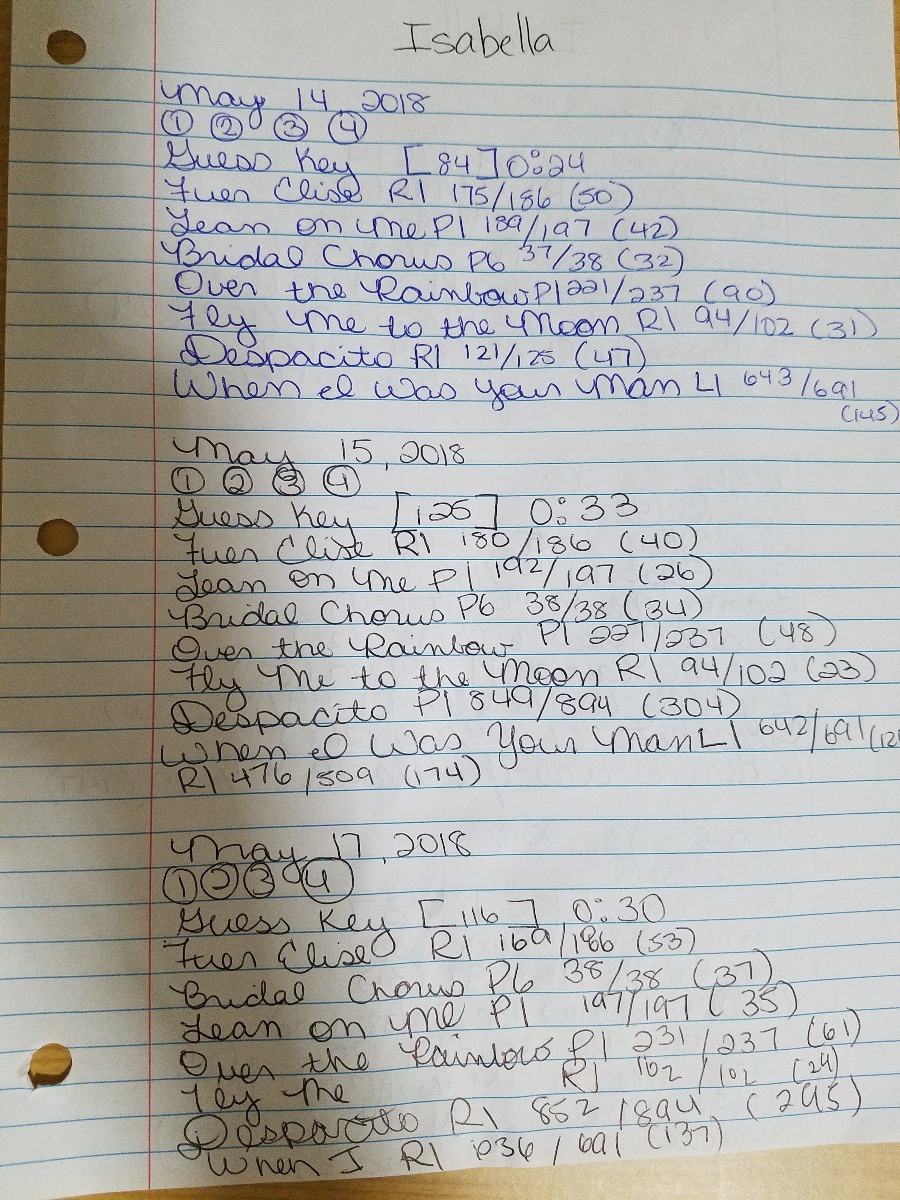 Isabella
May 14, 2018
① ② ③ ④
Guess Key [84] 0:24
Fuer Elise R1 175/186 (50)
Lean on Me P1 189/197 (42)
Bridal Chorus P6 37/38 (32)
Over the Rainbow P1 221/237 (90)
Fly Me to the Moon R1 94/102 (31)
Despacito R1 121/125 (47)
When I Was Your Man L1 643/691
(145)
May 15, 2018
① ② ③ ④
Guess Key [125] 0:33
Fuer Elise R1 180/186 (40)
Lean on Me P1 192/197 (26)
Bridal Chorus P6 38/38 (34)
Over the Rainbow P1 227/237 (48)
Fly Me to the Moon R1 94/102 (23)
Despacito P1 849/894 (304)
When I Was Your Man L1 642/691
R1 476/509 (174)
May 17, 2018
① ② ③ ④
Guess Key [116] 0:30
Fuer Elise R1 169/186 (53)
Bridal Chorus P6 38/38 (37)
Lean on Me P1 197/197 (35)
Over the Rainbow P1 231/237 (61)
Fly Me R1 102/102 (24)
Despacito R1 852/894 (295)
When I R1 636/691 (137)